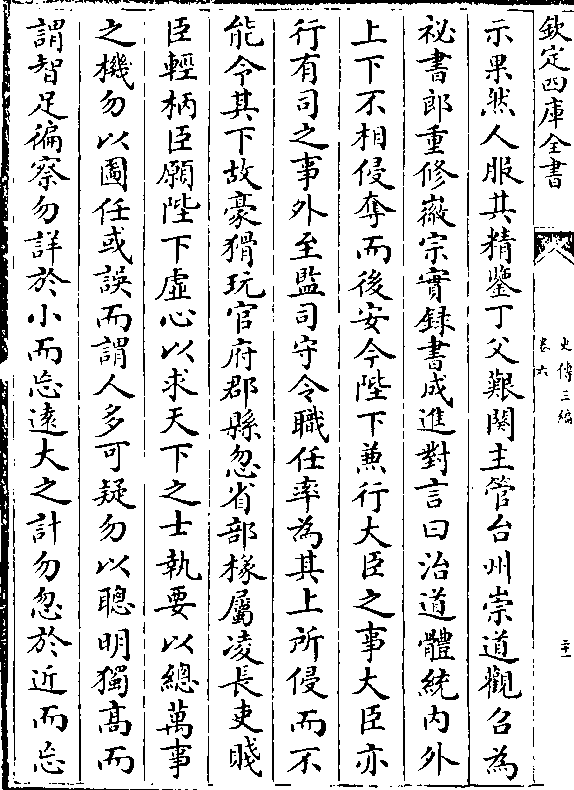 欽定四庫全書
史傳三編
卷六
示果然人服其精鑒丁父艱闋主管台州崇道觀召為
祕書郎重修徽宗實録書成進對言曰治道體統内外
上下不相侵奪而後安今陛下兼行大臣之事大臣亦
行有司之事外至監司守令職任率為其上所侵而不
能令其下故豪猾玩官府郡縣忽省部掾屬凌長吏賤
臣輕柄臣願陛下虚心以求天下之士執要以總萬事
之機勿以圖任或誤而謂人多可疑勿以聰明獨高而
謂智足徧察勿詳於小而忘遠大之計勿忽於近而忘